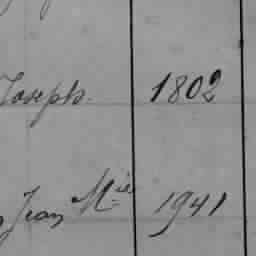 Joseph. 1802
Jean M.ie 1941